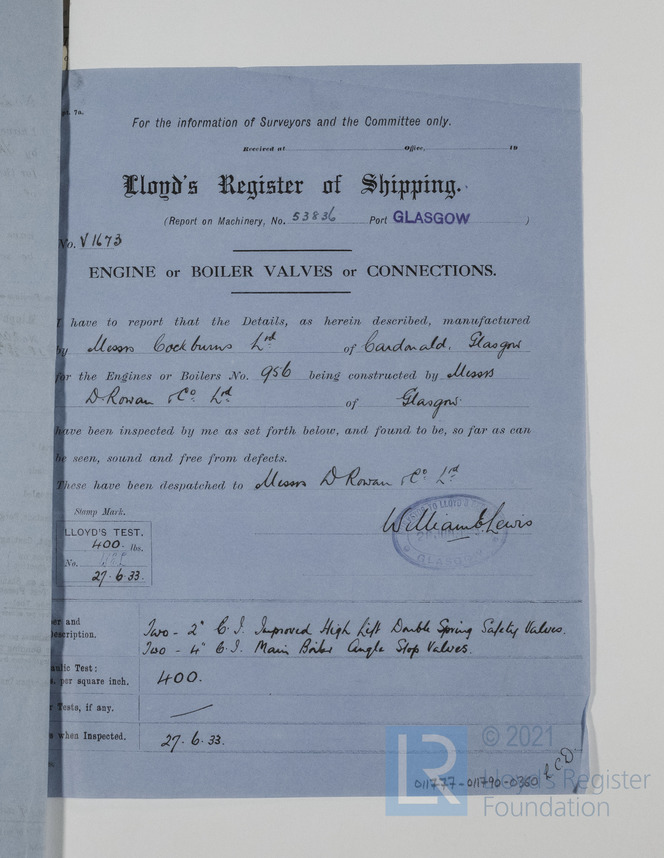 pt. 7a.
For the information of Surveyors and the Committee only.
Received at Office, 19
Lloyd's Register of Shipping.
(Report on Machinery, No. 53836 Port GLASGOW )
No. V1673
ENGINE or BOILER VALVES or CONNECTIONS.
I have to report that the Details, as herein described, manufactured
by Messrs Cockburns Ltd of Cardonald, Glasgow
for the Engines or Boilers No. 956 being constructed by Messrs
D. Rowan & Co. Ltd of Glasgow
have been inspected by me as set forth below, and found to be, so far as can
be seen, sound and free from defects.
These have been despatched to Messrs D Rowan & Co Ltd
Stamp Mark.
William E Lewis
GLASGOW
LLOYD'S TEST.
400 lbs.
No.
27.6.33.
er and
Description.
Two - 2" C.I. Improved High Lift Double Spring Safety Valves.
Two - 4" C.I. Main Boiler Angle Stop Valves.
ulic Test:
s. per square inch. 400.
r Tests, if any.
s when Inspected. 27.6.33.
© 2021
LR Lloyd's Register
Foundation
011777-011790-0360